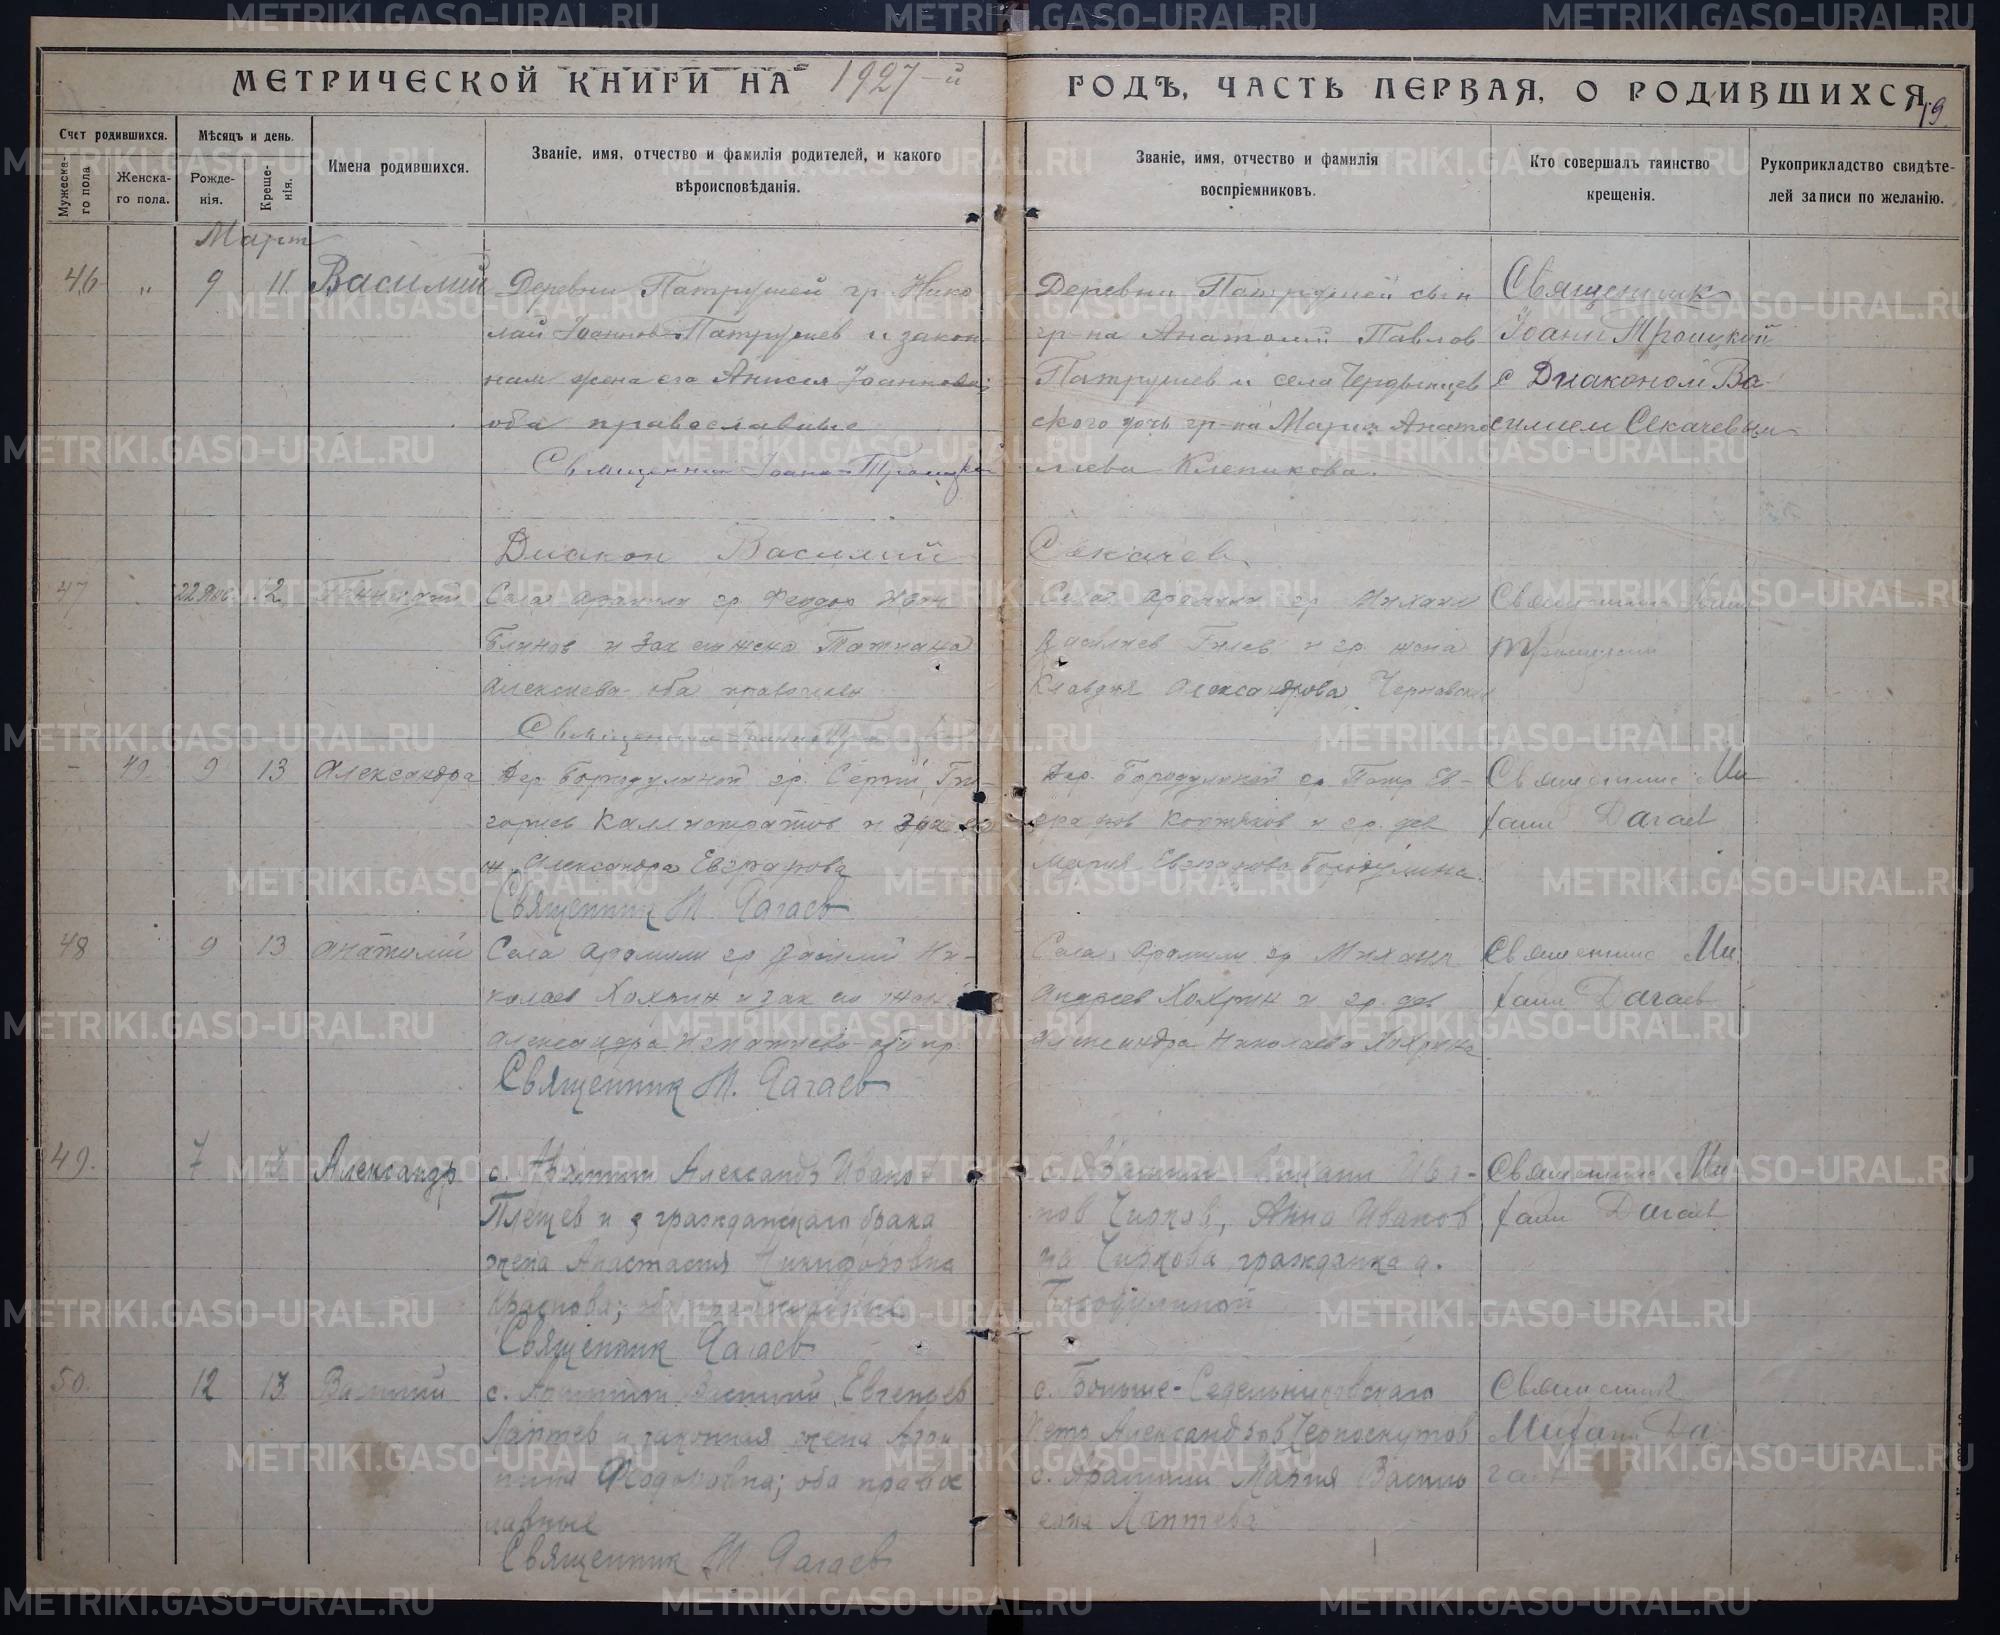 МЕТРИЧЕСКОЙ КНИГИ НА 1927-й ГОДЪ, ЧАСТЬ ПЕРВАЯ, О РОДИВШИХСЯ.
19.
Счет родившихся.
Мужеска-го пола
Женска-го пола.
Мѣсяцъ и день.
Рожде-нія.
Креще-нія.
Имена родившихся.
Званіе, имя, отчество и фамилія родителей, и какого вѣроисповѣданія.
Званіе, имя, отчество и фамилія воспріемниковъ.
Кто совершалъ таинство крещенія.
Рукоприкладство свидѣте-лей записи по желанію.
Март
46 " 9 11 Василий
Деревни Патрушей гр. Нико
лай Іоаннов Патрушев и закон
ная жена его Анисия Іоаннова;
оба православные
Священник Іоанн Троицкий
Деревни Патрушей сын
гр-на Анатолий Павлов
Патрушев и села
ского дочь гр-на Мария Анато
лиева Клепикова.
Священник
Іоанн Троицкий
с Диаконом Ва-
силием Секачевым
Диакон Василий Секачев
47 22 2 Геннадий
Села Арамили гр. Феодор Иван
Блинов и зак ея жена Татиана
Алексиева оба православ
Священник Іоанн Троицкий
Села Арамили гр Михаил
Василиев Гилев и гр. жена
Клавдия Александрова
Священник
Троицкий
9 13 Александра
Дер Бородулиной гр. Сергий Гри-
гориев Каллистратов и зак его
ж. Александра Евграфова
Священник М. Дагаев
Дер. Бородулиной гр Петр Ев-
графов и гр. дев
Мария Евграфова Бородулина.
Священник Ми
хаил Дагаев
48 9 13 Анатолий
Села Арамили гр Василий Ни-
колаев Хохрин и зак его жена
Александра Игнатиева оба пр.
Священник М. Дагаев
Села Арамили гр Михаил
Андреев Хохрин и гр. дев
Александра Николаева Хохрина
Священник Ми
хаил Дагаев
49. 7 Александр
с. Арамили Александр Иванов
Плещев и з гражданскаго брака
жена Анастасия Никифоровна
Краснова; оба православные
Священник Дагаев
с. Арамили Ива-
нов Чирков, Анна Иванов
на Чиркова гражданка д.
Бородулиной
Священник Ми
хаил Дагаев
50. 12 13 Василий
с. Арамили Василий Евгеньев
Лаптев и законная жена Агри
пина Феодоровна; оба правос
лавные
Священник М. Дагаев
с. Больше-Седельниковскаго
Петр Александров Черноскутов
с. Арамили Мария Василь
евна Лаптева
Священник
Михаил Да
гаев
METRIKI.GASO-URAL.RU